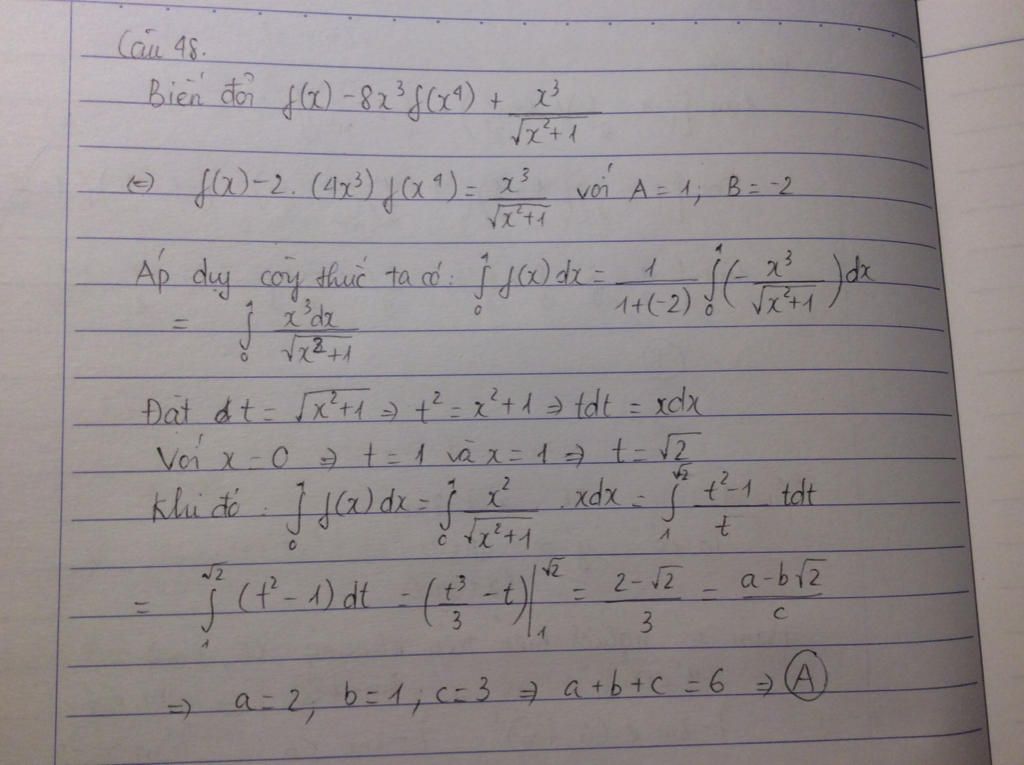 Câu 48.
Biến đổi f(x) - 8x³f(x⁴) + x³/√(x²+1)
⇔ f(x) - 2. (4x³) f(x⁴) = x³/√(x²+1) với A = 1; B = -2
Áp dụg côg thức ta có: ∫₀¹ f(x) dx = 1/(1+(-2)) ∫₀¹ (- x³/√(x²+1)) dx
= ∫₀¹ x³dx/√(x²+1)
Đặt t = √(x²+1) ⇒ t² = x²+1 ⇒ tdt = xdx
Với x = 0 ⇒ t = 1 và x = 1 ⇒ t = √2
Khi đó: ∫₀¹ f(x) dx = ∫₀¹ x²/√(x²+1) . xdx = ∫₁^√2 (t²-1)/t tdt
= ∫₁^√2 (t² - 1) dt = (t³/3 - t)|₁^√2 = (2-√2)/3 = (a-b√2)/c
⇒ a = 2, b = 1; c = 3 ⇒ a+b+c = 6 ⇒ Ⓐ